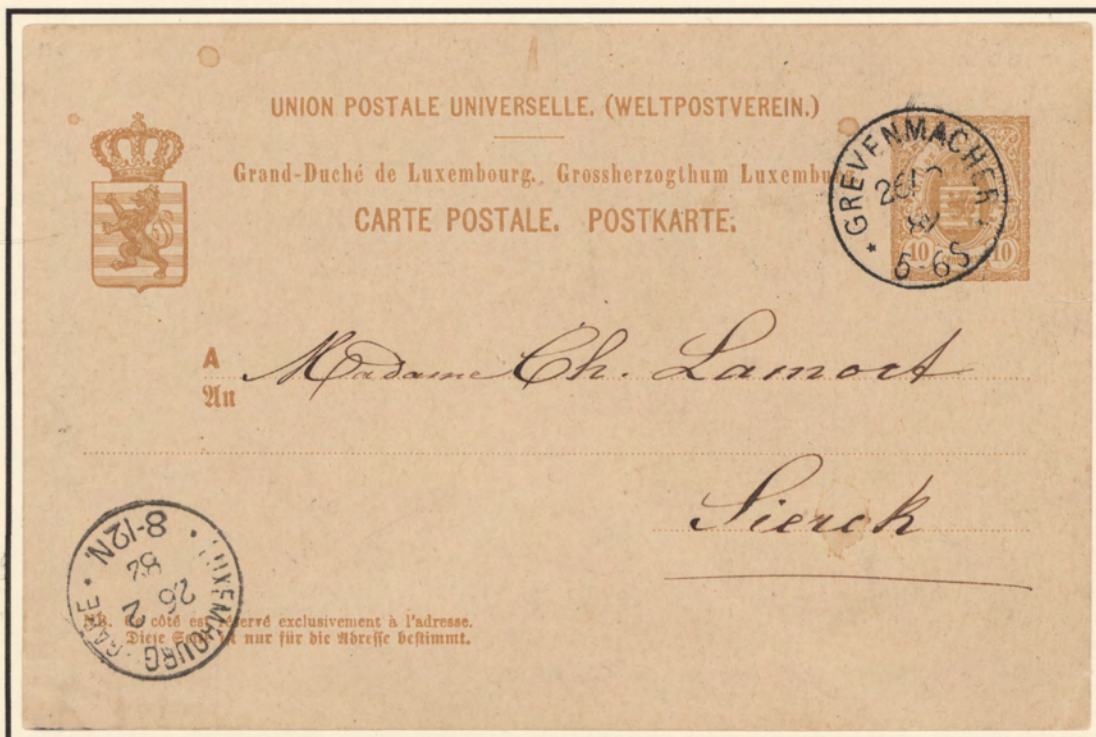 UNION POSTALE UNIVERSELLE. (WELTPOSTVEREIN.)
Grand-Duché de Luxembourg. Grossherzogthum
CARTE POSTALE. POSTKARTE.
GREVENMACHER
5-6S
10 10
A
An
Madame Ch. Lamort
Sierck
LUXEMBOURG-GARE
26 2
8-12N.
NB. Ce côté est réservé exclusivement à l'adresse.
Diese nur für die Adresse bestimmt.